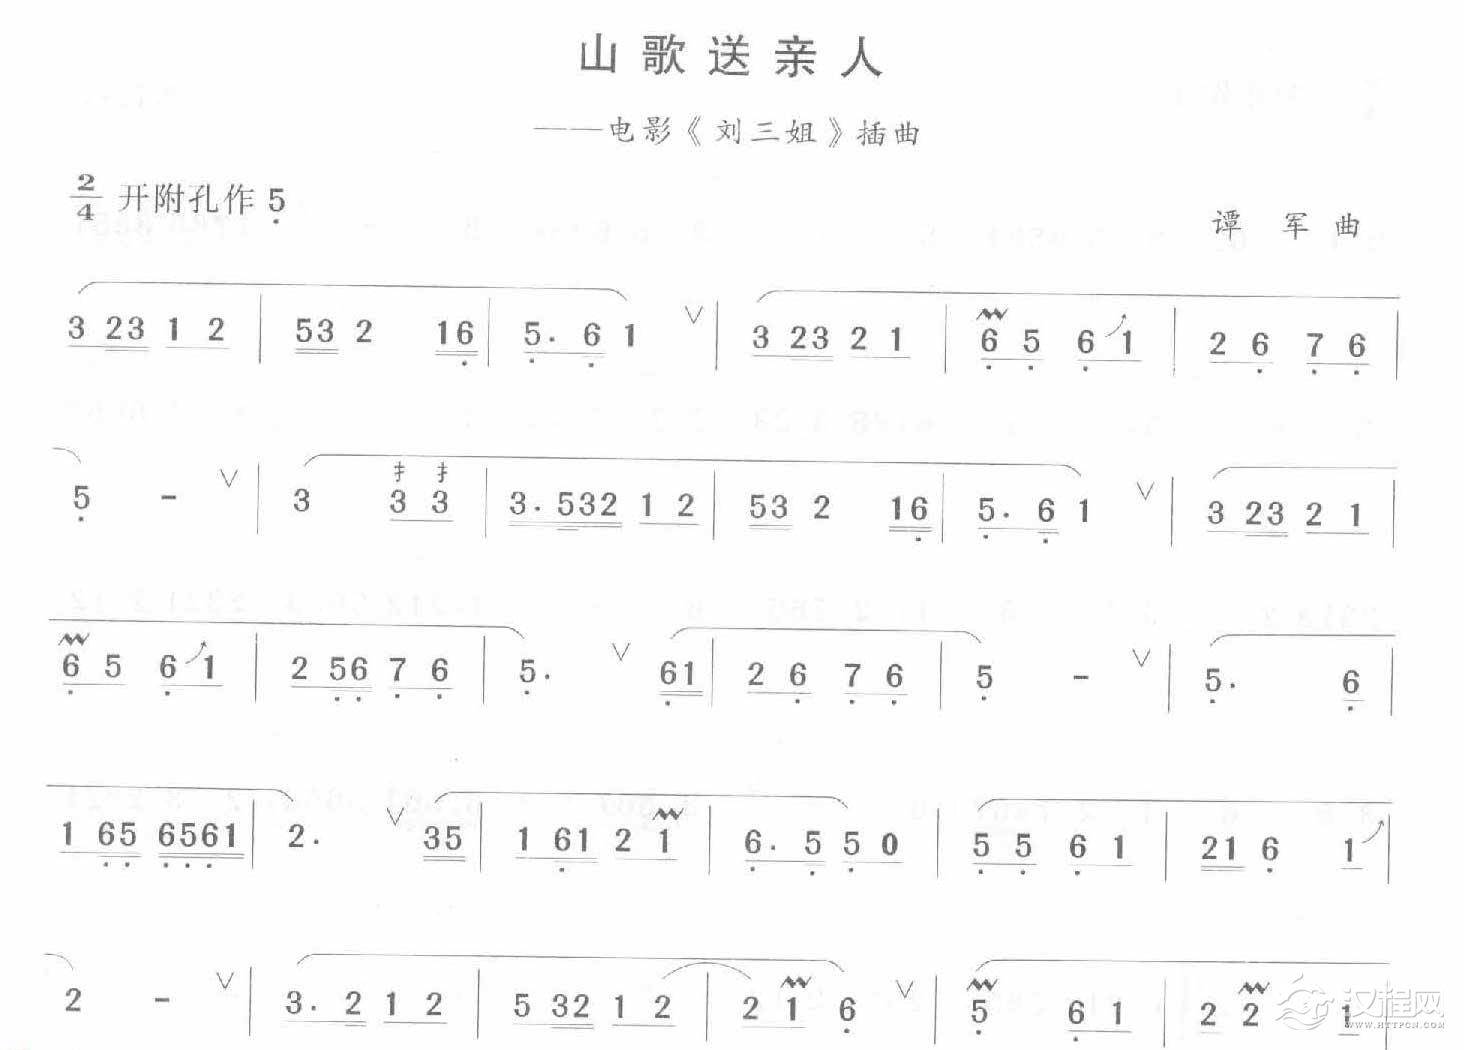 山歌送亲人
——电影《刘三姐》插曲
2/4 开附孔作 5
谭 军 曲
3 23 1 2 | 53 2 16 | 5. 6 1 ∨ | 3 23 2 1 | 6 5 6 1 | 2 6 7 6 |
5 - ∨ | 3 3 3 | 3.532 1 2 | 53 2 16 | 5. 6 1 ∨ | 3 23 2 1 |
6 5 6 1 | 2 56 7 6 | 5. ∨ 61 | 2 6 7 6 | 5 - ∨ | 5. 6 |
1 65 6561 | 2. ∨ 35 | 1 61 2 1 | 6. 5 5 0 | 5 5 6 1 | 21 6 1 |
2 - ∨ | 3. 2 1 2 | 5 32 1 2 | 2 1 6 ∨ | 5 6 1 | 2 2 1
汉程网
WWW.HTTPCN.COM